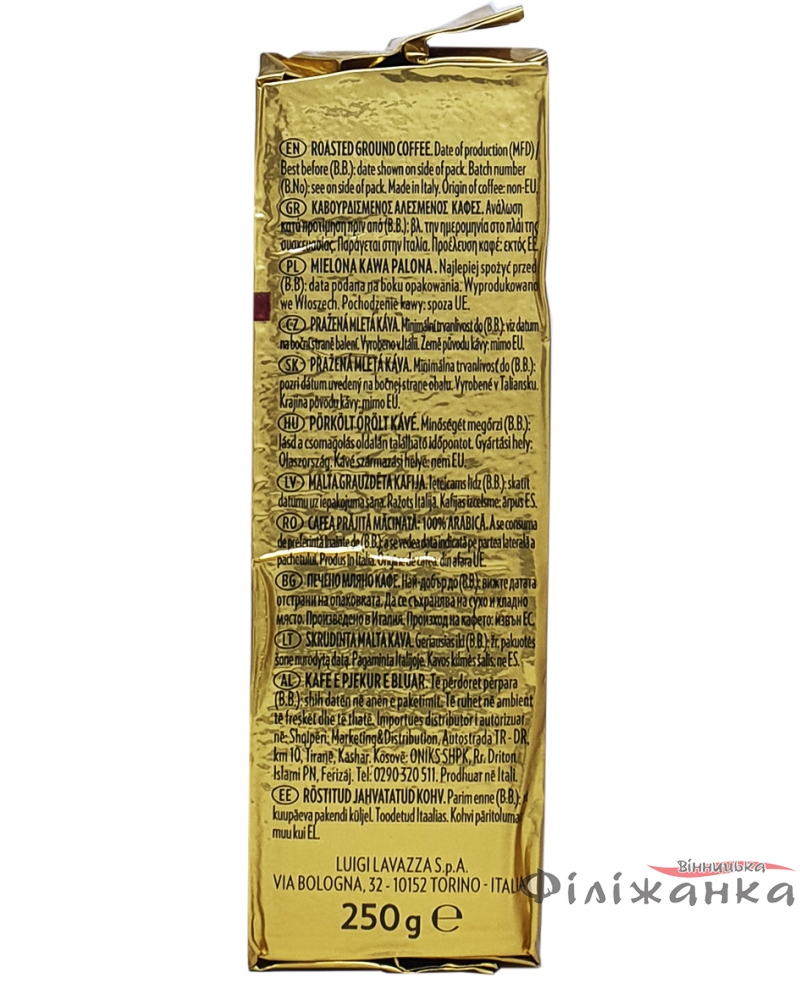 EN ROASTED GROUND COFFEE. Date of production (MFD)/
Best before (B.B.): date shown on side of pack. Batch number
(B.No): see on side of pack. Made in Italy. Origin of coffee: non-EU.
GR ΚΑΒΟΥΡΔΙΣΜΕΝΟΣ ΑΛΕΣΜΕΝΟΣ ΚΑΦΕΣ. Ανάλωση
κατά προτίμηση πριν από (B.B.): βλ. την ημερομηνία στο πλάι της
συσκευασίας. Παράγεται στην Ιταλία. Προέλευση καφέ: εκτός ΕΕ.
PL MIELONA KAWA PALONA. Najlepiej spożyć przed
(B.B): data podana na boku opakowania. Wyprodukowano
we Włoszech. Pochodzenie kawy: spoza UE.
CZ PRAŽENÁ MLETÁ KÁVA. Minimální trvanlivost do (B.B.): viz datum
na boční straně balení. Vyrobeno v Itálii. Země původu kávy: mimo EU.
SK PRAŽENÁ MLETÁ KÁVA. Minimálna trvanlivosť do (B.B.):
pozri dátum uvedený na bočnej strane obalu. Vyrobené v Taliansku.
Krajina pôvodu kávy: mimo EU.
HU PÖRKÖLT ŐRÖLT KÁVÉ. Minőségét megőrzi (B.B.):
lásd a csomagolás oldalán található időpontot. Gyártási hely:
Olaszország. Kávé származási helye: nem EU.
LV MALTA GRAUZDĒTA KAFIJA. Ieteicams līdz (B.B.): skatīt
datumu uz iepakojuma sāna. Ražots Itālijā. Kafijas izcelsme: ārpus ES.
RO CAFEA PRĂJITĂ MĂCINATĂ- 100% ARABICA. A se consuma
de preferință înainte de (B.B.): a se vedea data indicată pe partea laterală a
pachetului. Produs în Italia. Origine de cafea: din afara UE.
BG ПЕЧЕНО МЛЯНО КАФЕ. Най-добър до (B.B.): вижте датата
отстрани на опаковката. Да се съхранява на сухо и хладно
място. Произведено в Италия. Произход на кафето: извън ЕС.
LT SKRUDINTA MALTA KAVA. Geriausias iki (B.B.): žr. pakuotės
šone nurodytą datą. Pagaminta Italijoje. Kavos kilmės šalis: ne ES.
AL KAFE E PJEKUR E BLUAR. Të përdoret përpara
(B.B.): shih datën në anën e paketimit. Të ruhet në ambient
të freskët dhe të thatë. Importues distributor i autorizuar
në: Shqipëri: Marketing&Distribution, Autostrada TR - DR,
km 10, Tiranë, Kashar. Kosovë: ONIKS SHPK, Rr. Driton
Islami PN, Ferizaj. Tel: 0290 320 511. Prodhuar në Itali.
EE RÖSTITUD JAHVATATUD KOHV. Parim enne (B.B.):
kuupäeva pakendi küljel. Toodetud Itaalias. Kohvi päritolumaa:
muu kui EL.
LUIGI LAVAZZA S.p.A.
VIA BOLOGNA, 32 - 10152 TORINO - ITALIA
250 g ℮
Вінницька
Філіжанка